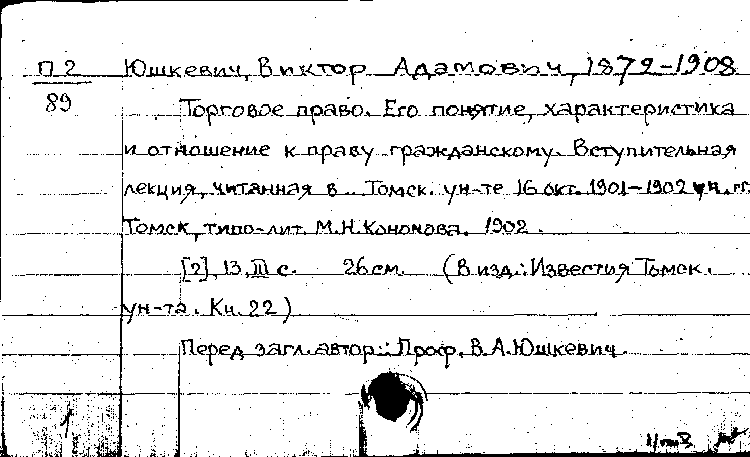 П 2
89
Юшкевич, Виктор Адамович, 1879-1908
Торговое право. Его понятие, характеристика
и отношение к праву гражданскому. Вступительная
лекция, читанная в Томск. ун-те 16 окт. 1901-1902 уч. гг.
Томск, типо-лит. М.Н. Кононова. 1902.
[2], 13, III с. 26 см. (В изд.: Известия Томск.
ун-та. Кн. 22)
Перед загл. автор: Проф. В.А. Юшкевич.
1